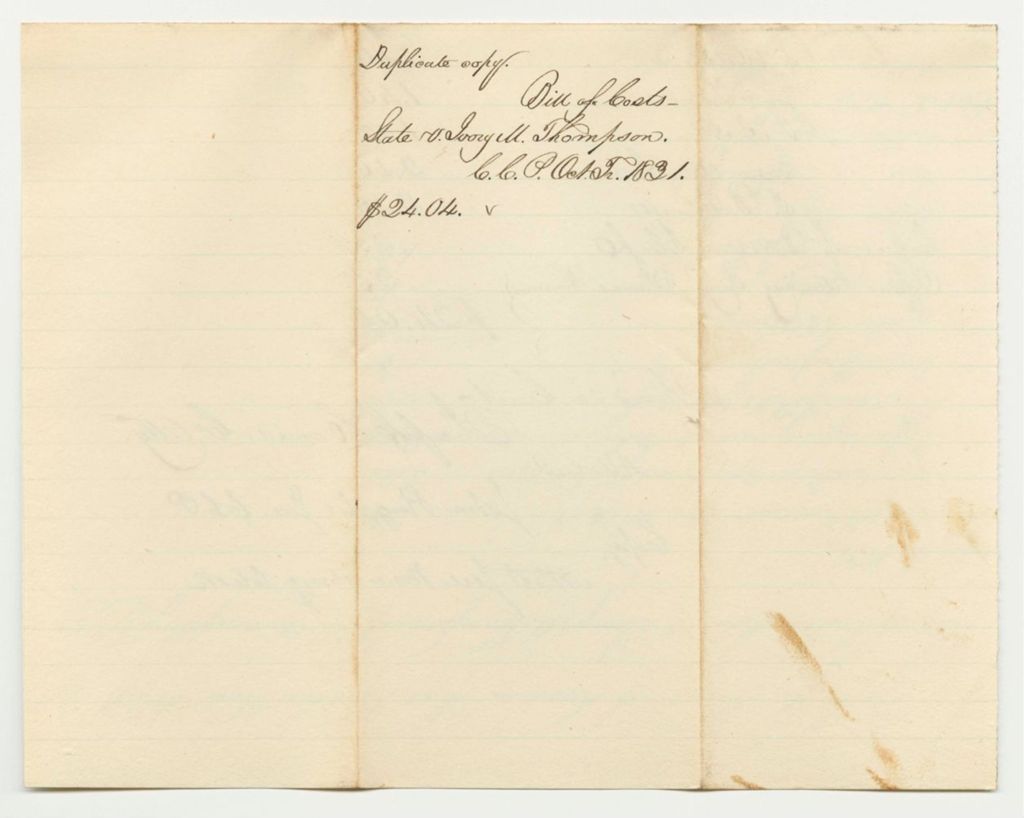 Duplicate copy.
Bill of Costs-
State v. Ivory M. Thompson.
C. C. P. Oct. Tr. 1831.
$24.04. v